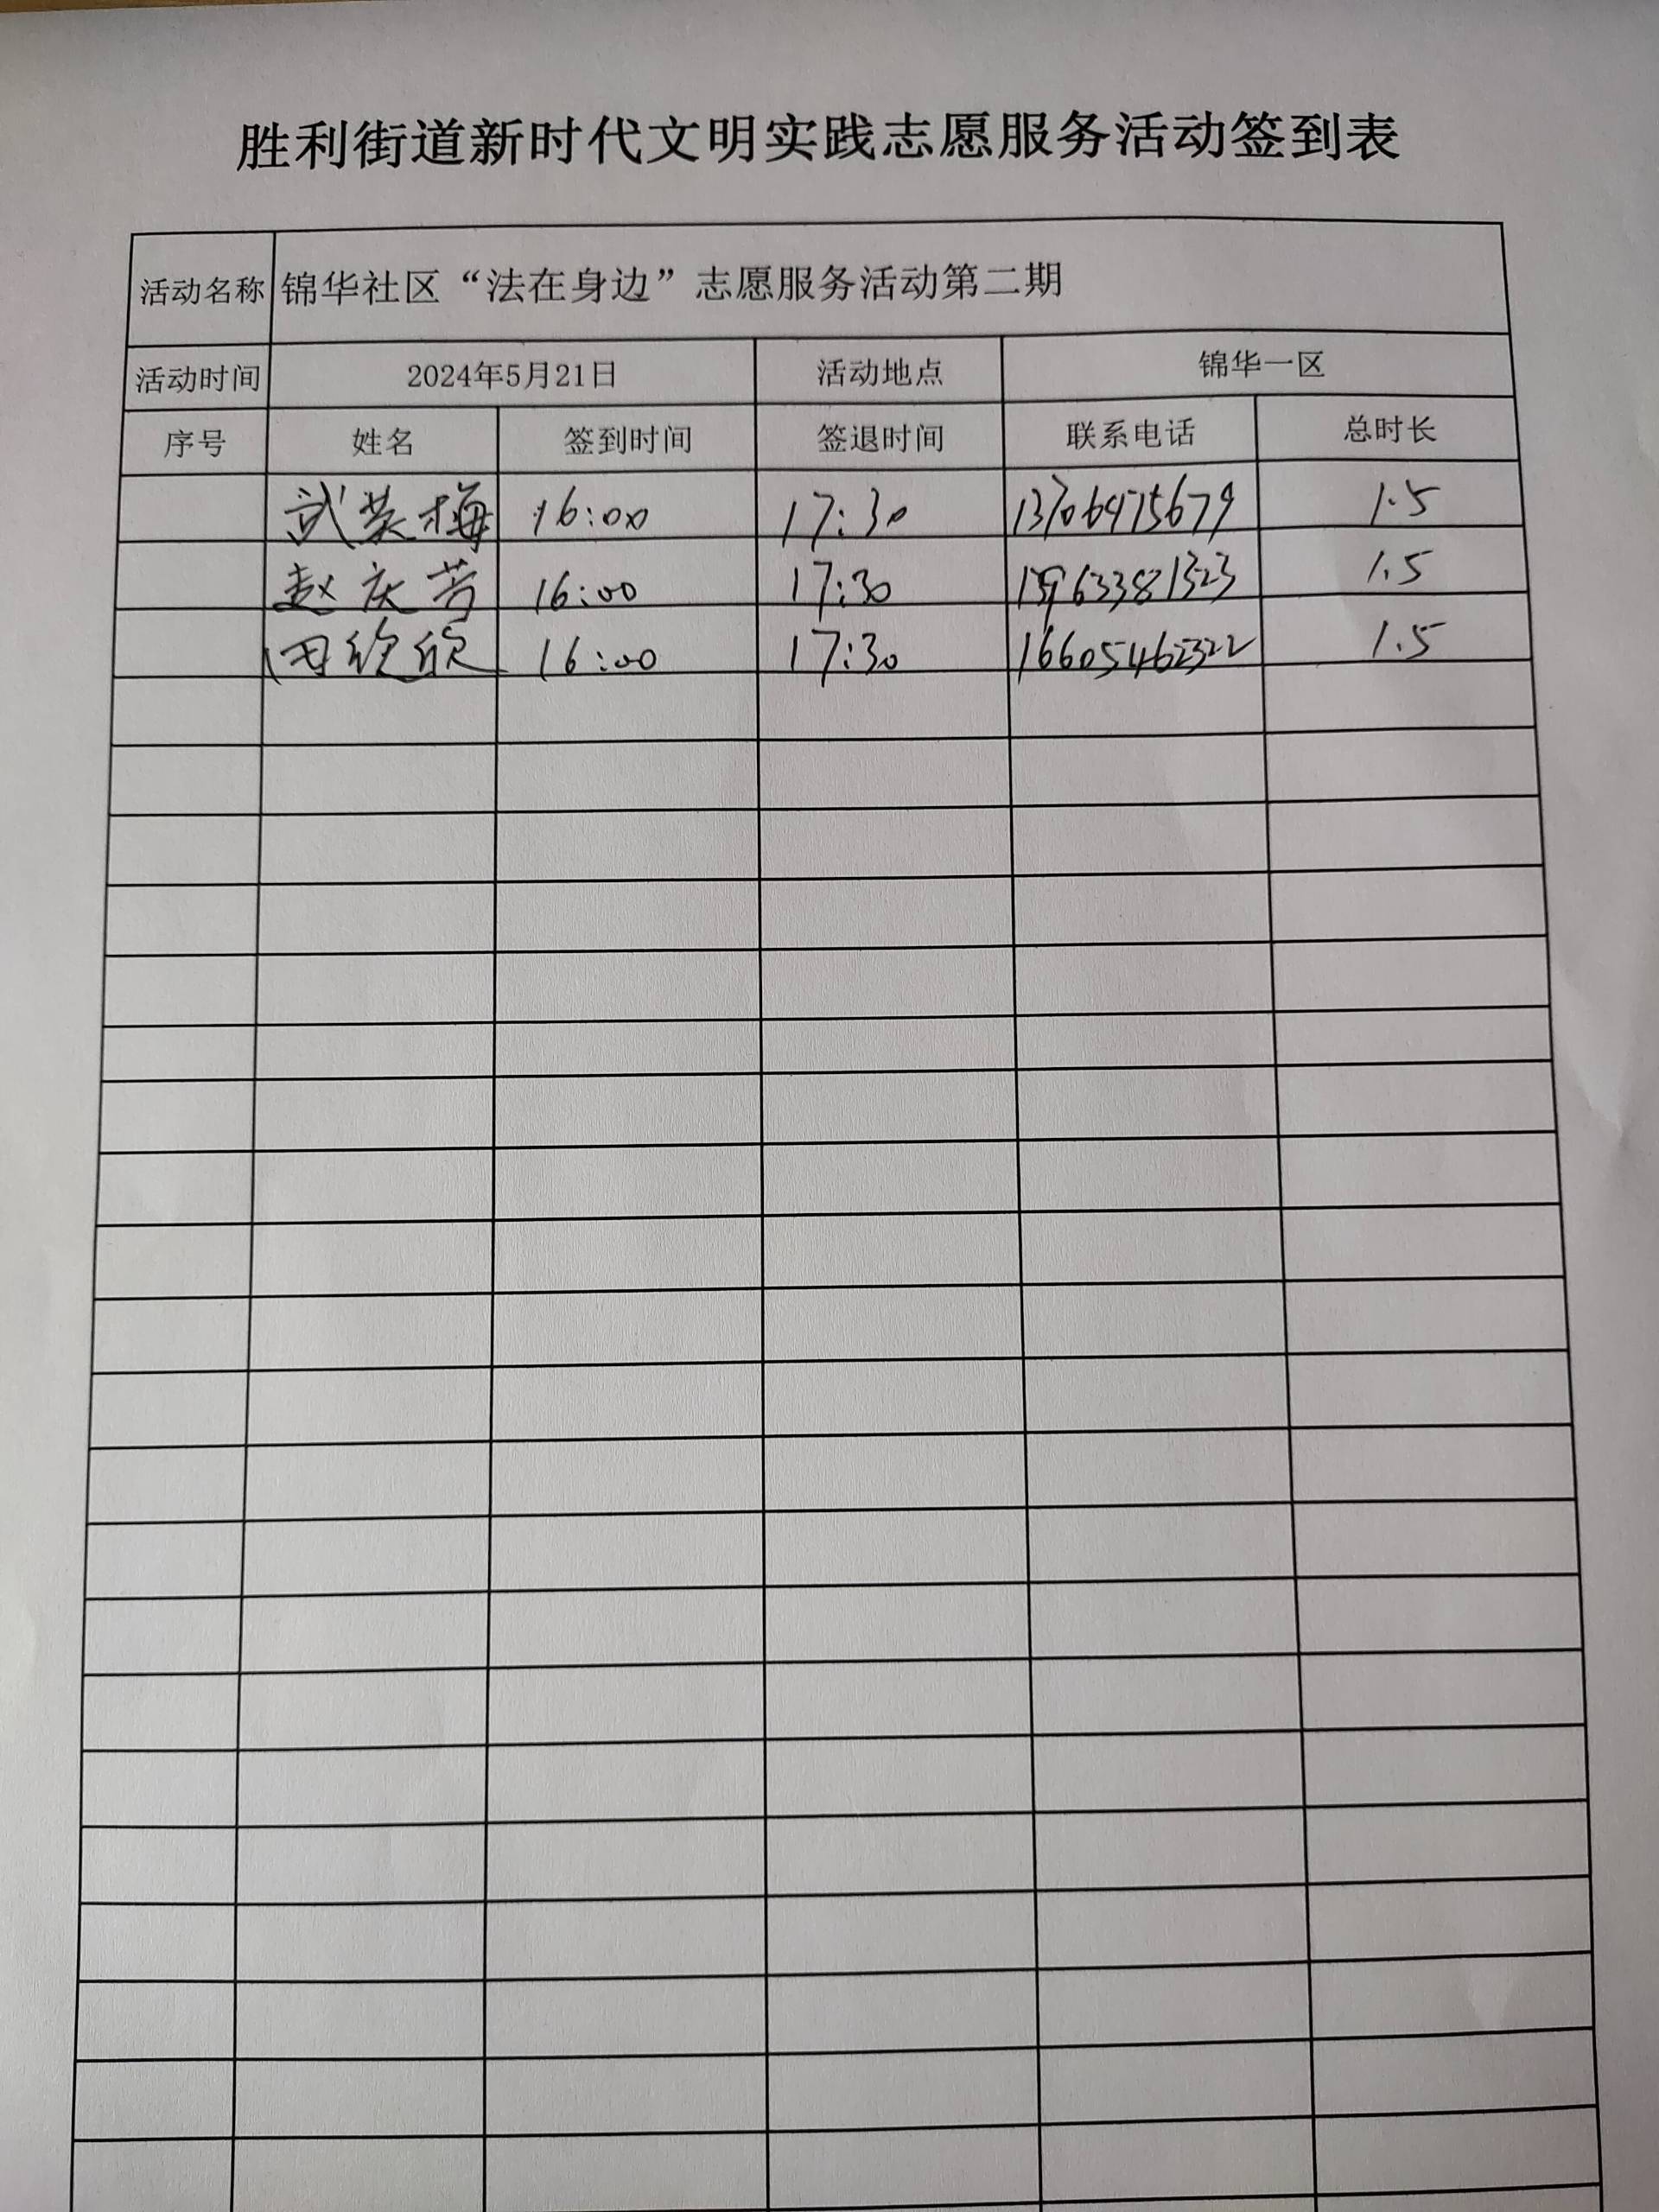 胜利街道新时代文明实践志愿服务活动签到表
活动名称 锦华社区“法在身边”志愿服务活动第二期
活动时间 2024年5月21日 活动地点 锦华一区
序号 姓名 签到时间 签退时间 联系电话 总时长
武英梅 16:00 17:30 1.5
赵庆芳 16:00 17:30 1.5
田 16:00 17:30 16605462322 1.5